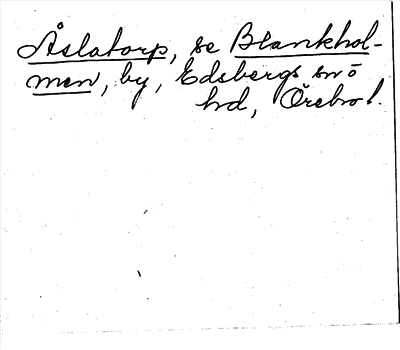 Åslatorp, se Blankhol-
men, by, Edsbergs sn o
hd, Örebro l.